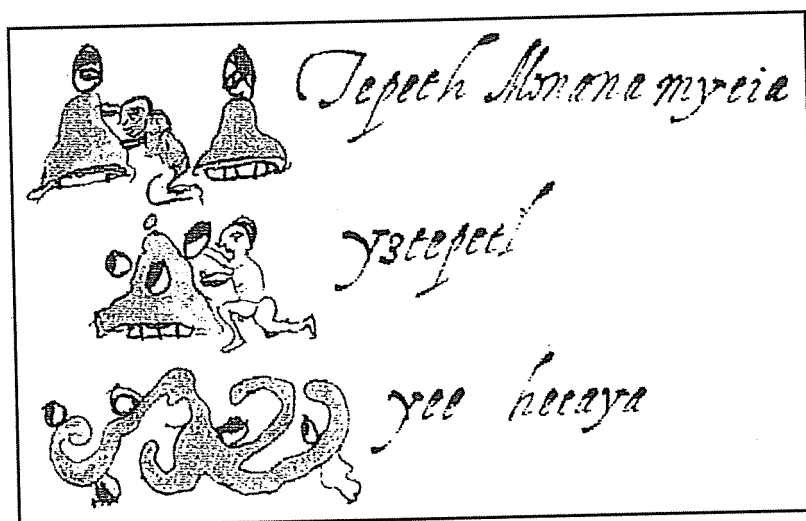 Tepetl Monanamycia
yztepetl
yee hecaya